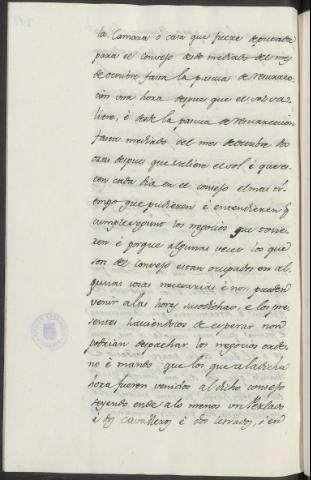 la Camara o casa que fuere deputada
para el consejo desde mediado del mes
de octubre fasta la pascua de resurrec
cion una hora despues que el sol sa
liere, é desde la pascua de resurreccion
fasta mediado del mes de octubre do
oras despues que saliere el sol é que es
ten cada dia en el consejo el mas ti
empo que pudieren é entendieren q̃
cumple segunt los negocios que tovier
en é porque algunas veces los que
son del consejo estan ocupados en al
gunas cosas necesarias é non pueden
venir a las horas susodichas, e los pre
sentes haciendolos de esperar non
podrian despachar los negocios orde
no é mando que los que a la dicha
hora fueren venidos al dicho consejo
seyendo ende a lo menos un Perlado
é dos cavalleros é dos letrados, é en